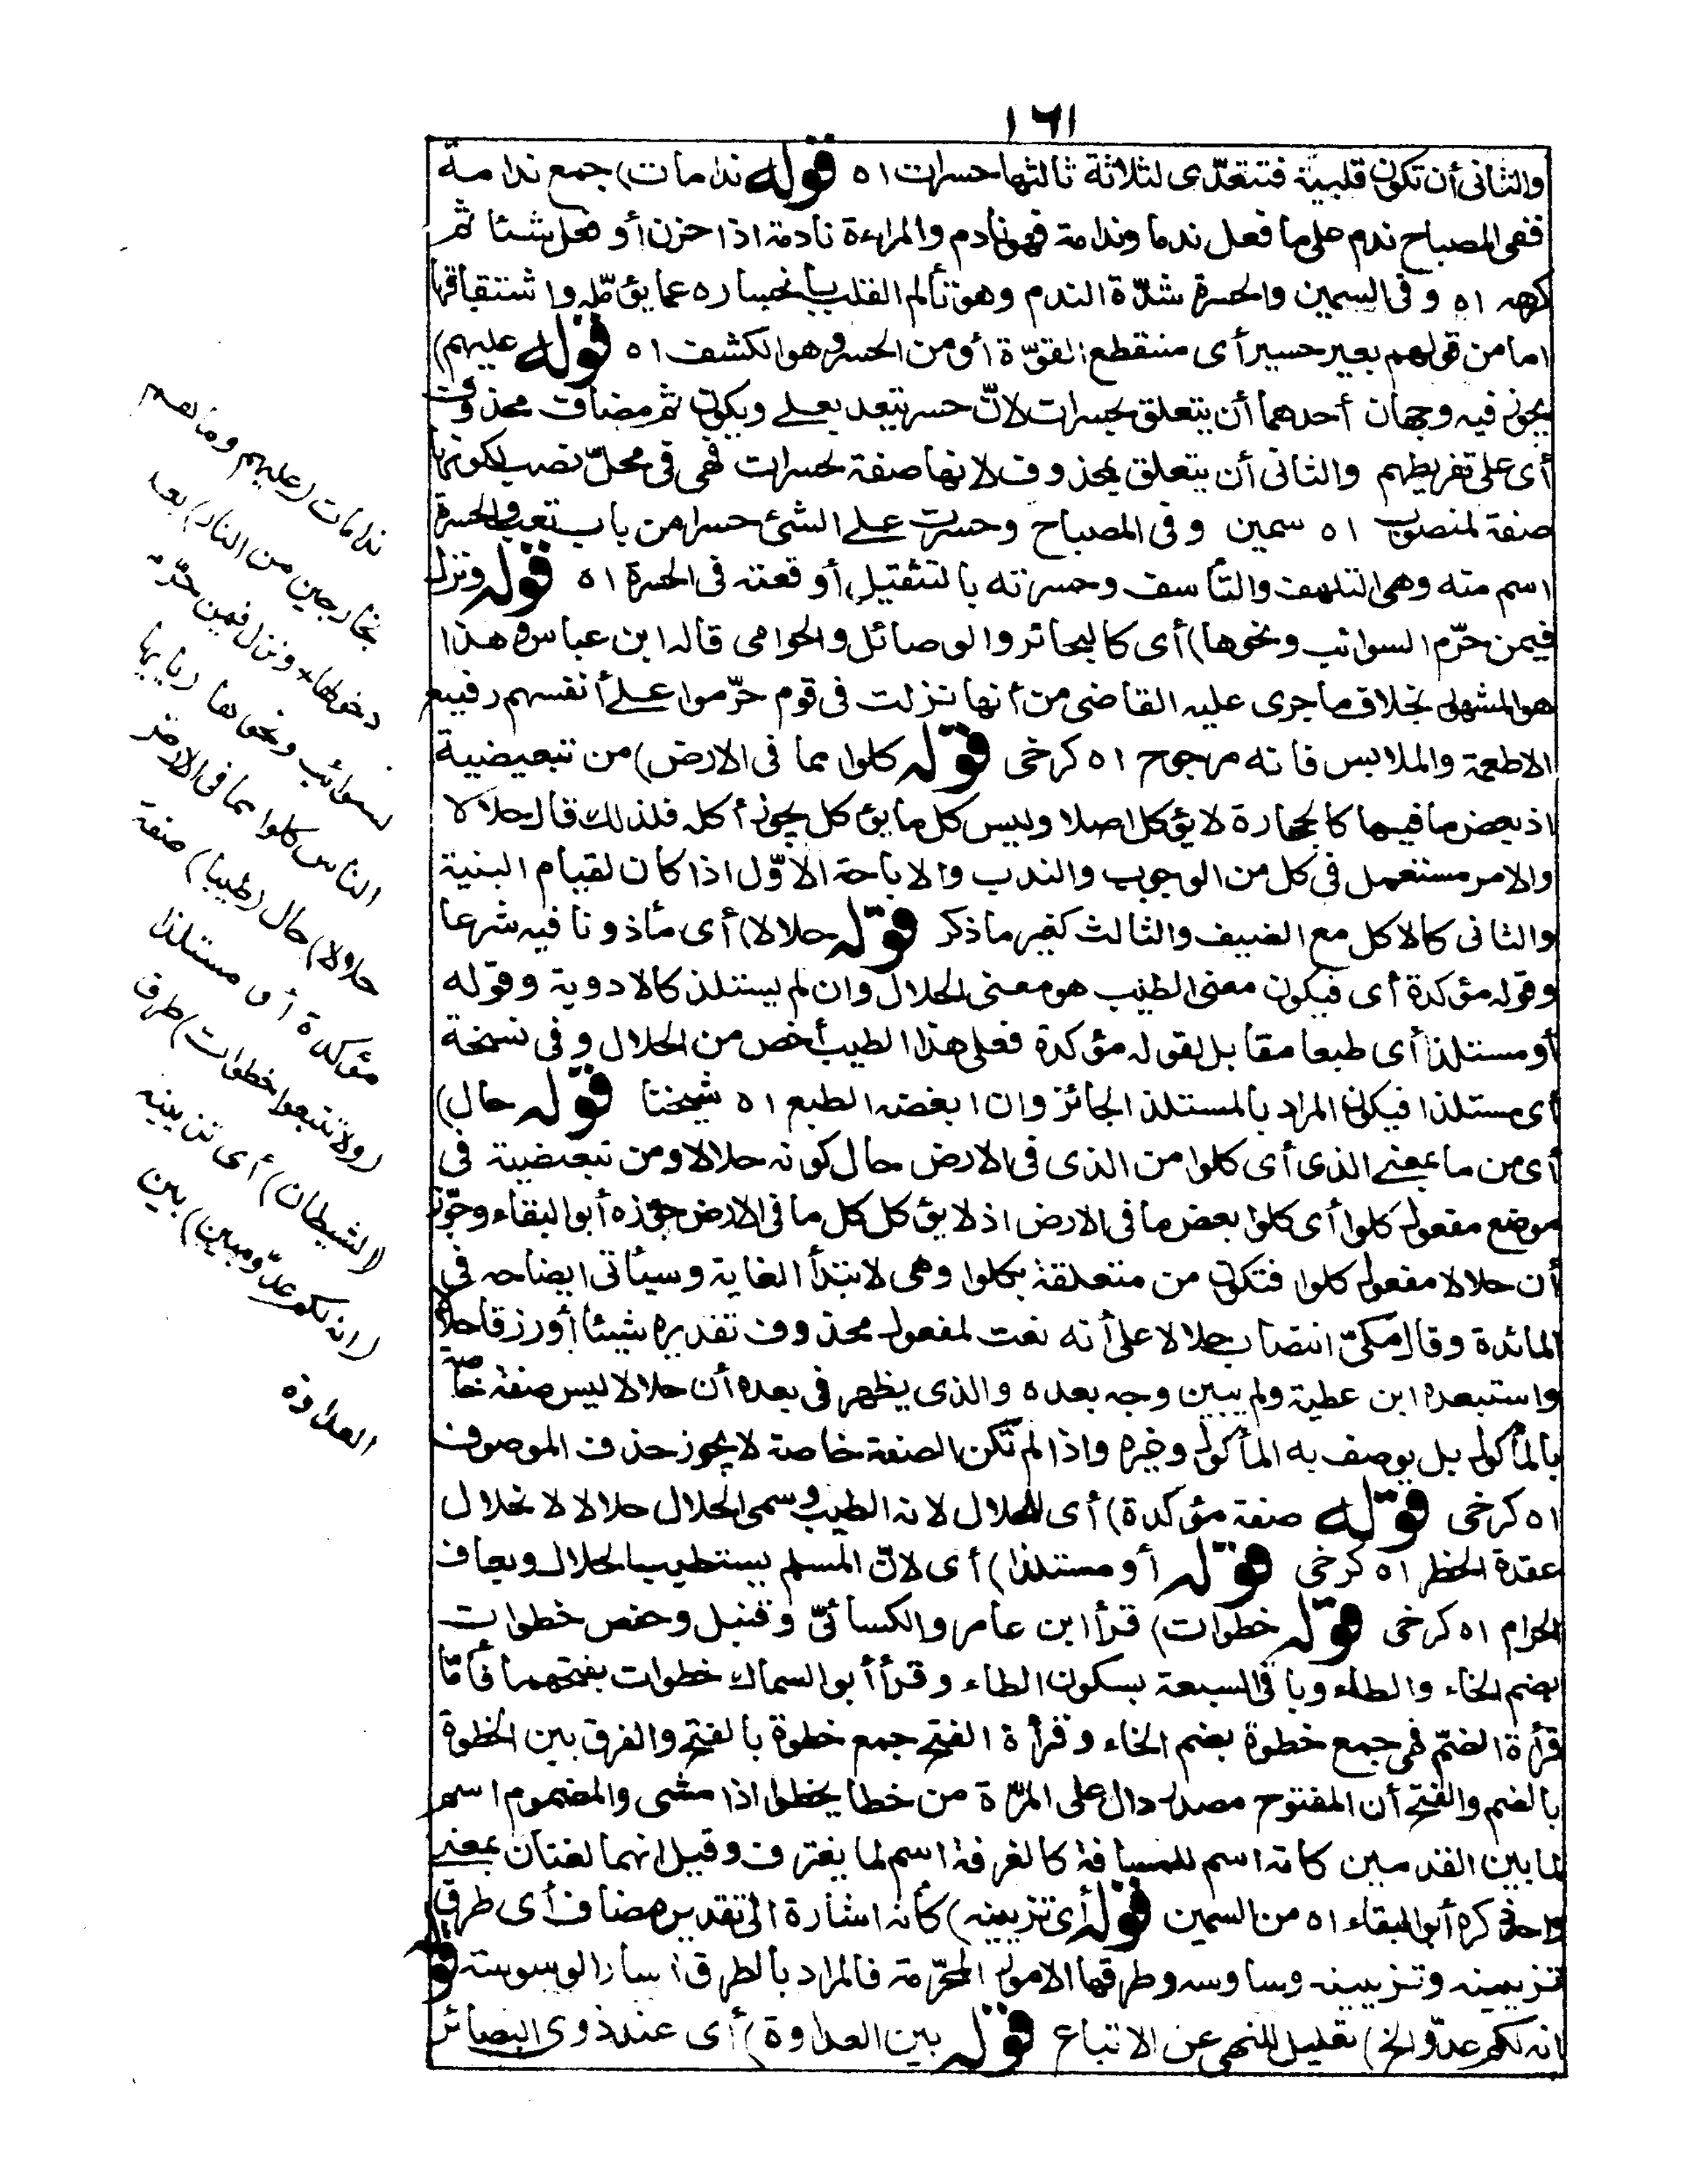 ١٦١
والثانى أن تكون قلبية فتتعدّى لثلاثة ثالثها حسرات اه قوله ندامات) جمع ندامة
ففى المصباح ندم على ما فعل ندما وندامة فهو نادم والمراءة نادمة اذا حزن أو فعل شيئا ثم
كرهه اه وفى السمين والحسرة شدّة الندم وهو تألم القلب بانحساره عما يؤمّله واشتقاقها
اما من قولهم بعير حسير أى منقطع القوّة أو من الحسر وهو الكشف اه قوله عليهم)
يجوز فيه وجهان أحدهما أن يتعلق بحسرات لانّ حسر يتعد بعلے ويكون ثم مضاف محذوف
أى على تفريطهم والثانى أن يتعلق بمحذوف لانها صفة لحسرات فهى فى محلّ نصب لكونها
صفة لمنصوب اه سمين وفى المصباح وحسرت علے الشئ حسرا من باب تعب والحسرة
اسم منه وهى التلهف والتأسف وحسرته بالتثقيل أوقعته فى الحسرة اه قوله ونزل
فيمن حرّم السوائب ونحوها) أى كالبحائر والوصائل والحوامى قاله ابن عباس وهذا
هو المشهور بخلاف ما جرى عليه القاضى من أنها نزلت فى قوم حرّموا علے أنفسهم رفيع
الاطعمة والملابس فانه مرجوح اه كرخى قوله كلوا مما فى الارض) من تبعيضية
اذ بعض ما فيها كالحجارة لا يؤكل اصلا وليس كل ما يؤكل يجوز أكله فلذلك قال حلالا
والامر مستعمل فى كل من الوجوب والندب والاباحة الاوّل اذا كان لقيام البنية
والثانى كالاكل مع الضيف والثالث كغير ما ذكر قوله حلالا) أى مأذونا فيه شرعا
وقوله مؤكدة أى فيكون معنى الطيب هو معنى الحلال وان لم يستلذ كالادوية وقوله
أو مستلذا أى طبعا مقابل لقوله مؤكدة فعلى هذا الطيب أخص من الحلال وفى نسخة
أى مستلذا فيكون المراد بالمستلذ الجائز وان ابغضه الطبع اه شيخنا قوله حال)
أى من ما بمعنے الذى أى كلوا من الذى فى الارض حال كونه حلالا ومن تبعيضية فى
موضع مفعول كلوا أى كلوا بعض ما فى الارض اذ لا يؤكل كل ما فى الارض جوّزه أبو البقاء وجوّز
أن حلالا مفعول كلوا فتكون من متعلقة بكلوا وهى لابتدأ الغاية وسيأتى ايضاحه فى
المائدة وقال مكىّ انتصاب حلالا على أنه نعت لمفعول محذوف تقديره شيئا أو رزقا حلالا
واستبعده ابن عطية ولم يبين وجه بعده والذى يظهر فى بعده أن حلالا ليس صفة خاصّة
بالمأكول بل يوصف به المأكول وغيره واذا لم تكن الصفة خاصة لا يجوز حذف الموصوف
اه كرخى قوله صفة مؤكدة) أى للحلال لانه الطيب وسمى الحلال حلالا لانحلال
عقدة الحظر اه كرخى قوله أو مستلذا) أى لانّ المسلم يستطيب الحلال ويعاف
الحرام اه كرخى قوله خطوات) قرأ ابن عامر والكسائىّ وقنبل وحفص خطوات
بضم الخاء والطاء وباقى السبعة بسكون الطاء وقرأ أبو السمال خطوات بفتحهما فأمّا
قرأة الضمّ فهى جمع خطوة بضم الخاء وقرأة الفتح جمع خطوة بالفتح والفرق بين الخطوة
بالضم والفتح أن المفتوح مصدر دال على المرّة من خطا يخطو اذا مشى والمضموم اسم
لما بين القدمين كانه اسم للمسافة كالغرفة اسم لما يغترف وقيل انهما لغتان بمعنے
واحد ذكره أبو البقاء اه من السمين قوله أى تزيينه) كأنه اشارة الى تقدير مضاف أى طرق
تزيينه وتزيينه وساوسه وطرقها الامور المحرّمة فالمراد بالطرق اسار الوسوسة قوله
انه لكم عدوّ الخ) تعليل للنهى عن الاتباع قوله بين العداوة) أى عند ذوى البصائر
ندامات (عليهم وما هم
بخارجين من النار) بعد
دخولها * ونزل فيمن حرّم
السوائب ونحوها (يايها
الناس كلوا مما فى الارض
حلالا) حال (طيبا) صفة
مؤكدة أو مستلذا
(ولا تتبعوا خطوات) طرق
(الشيطان) أى تزيينه
(انه لكم عدوّ مبين) بين
العداوة